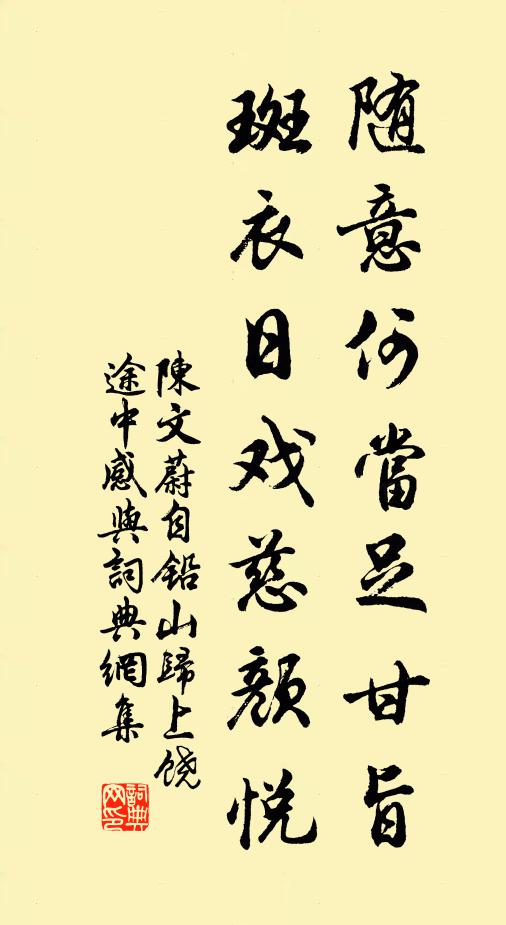 随意何當足甘旨
斑衣日戏慈颜悦
陳文蔚自鉛山歸上饶
途中感興詞典網集
詞典
网印